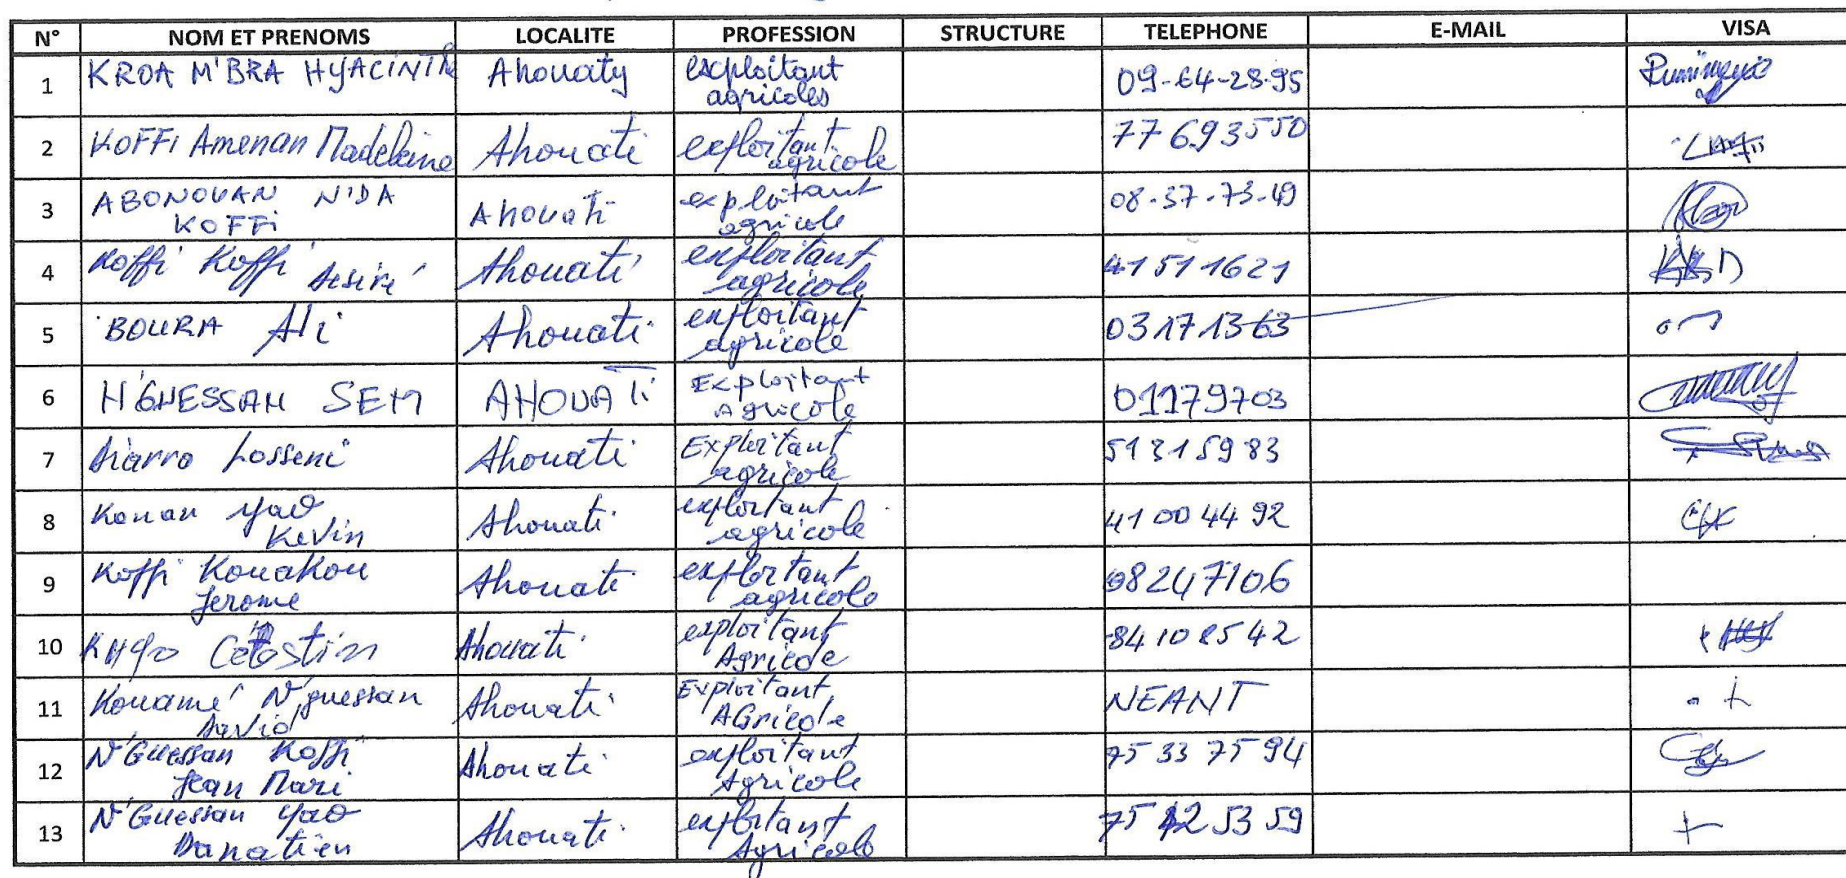 N° NOM ET PRENOMS LOCALITE PROFESSION STRUCTURE TELEPHONE E-MAIL VISA
1 KROA M'BRA HYACINTHE Ahouaty exploitant agricoles 09-64-28-95
2 KOFFI Amenan Madeleine Ahouati exploitant agricole 77693550
3 ABONOUAN N'DA KOFFI Ahouati exploitant agricole 08-37-73-49
4 Koffi Koffi Desiré Ahouati exploitant agricole 41511621
5 BOURA Ali Ahouati exploitant agricole 03171363
6 N'GUESSAN SEM AHOUATi Exploitant Agricole 01179703
7 Diarro Losseni Ahouati Exploitant agricole 51315983
8 Konan Yao Kevin Ahouati exploitant agricole 41 00 44 92
9 Koffi Kouakou Jerome Ahouati exploitant agricole 08247106
10 Celestin Ahouati exploitant Agricole 84108542
11 Kouamé N'guessan David Ahouati Exploitant AGricole NEANT
12 N'Guessan Koffi Jean Mari Ahouati exploitant Agricole 75 33 75 94
13 N'Guessan Yao Danatien Ahouati exploitant Agricole 75 42 53 59